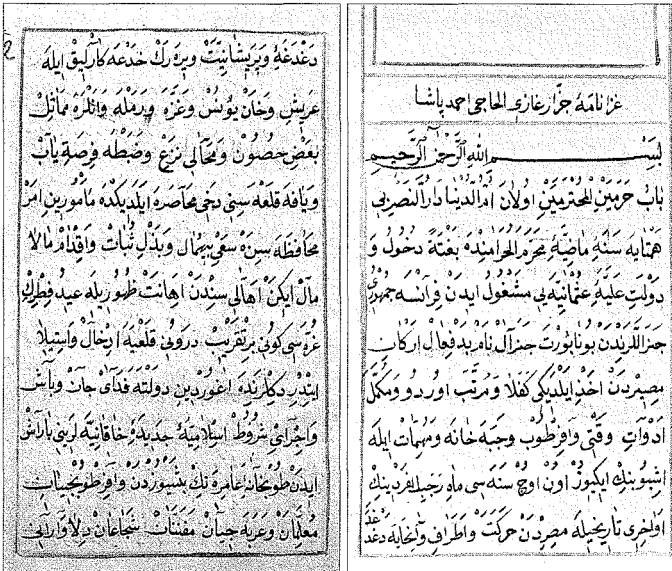 غزانامهٔ جزّار غازی الحاجی احمد پاشا
بسم الله الرّحمن الرّحیم
باب حرمین المحترمین اولان امّ الدّنیا دار النّصر بی
همتایه سنهٔ ماضیهٔ محرّم الحرامنده بغتةً دخول و
دولت علیّهٔ عثمانیّه یی مشغول ایدن فرانسه جمهوری
جنراللرندن بوناپورت جنرال نام بدفعال ارکان
مصردن اخذ ایلدیکی کفلا و مرتّب اوردو و مکمّل
ادوات وقتی وافر طوب وجبه خانه ومهمّات ایله
اشبو بیك ایکیوز اون اوچ سنه سی ماه رجب الفردینك
اواخری تاریخیله مصردن حرکت واطراف وانحایه دغدغه
دغدغهٔ وپریشانیّت ویره رك خدعه کارلیق ایله
عریش وخان یونس وغزّه ورمله واکلره مماثل
بعض حصون ومحالی نزع وضبطه فرصة یاب
ویافه قلعه سنی دخی محاصره ایلدیکده مأمورین امر
محافظه سینه سعی بیهمال وبذل ثبات واقدام مالا
مال ایکن اهالی سندن اهانت ظهوریله عید فطرك
غرّه سی کونی برتقریب درونی قلعه یه ادخال واستیلا
ایتدیردکلرنده اغور دین دولته فدای جان وباش
واجرای شروط اسلامیّهٔ جدیدهٔ خاقانیّه لرینی یاراش
ایدن طوپخانهٔ عامره نك بشیوزدن وافر طوپجیان
معلّمان وعربه جیان مفننات شجاعان دلاورانی